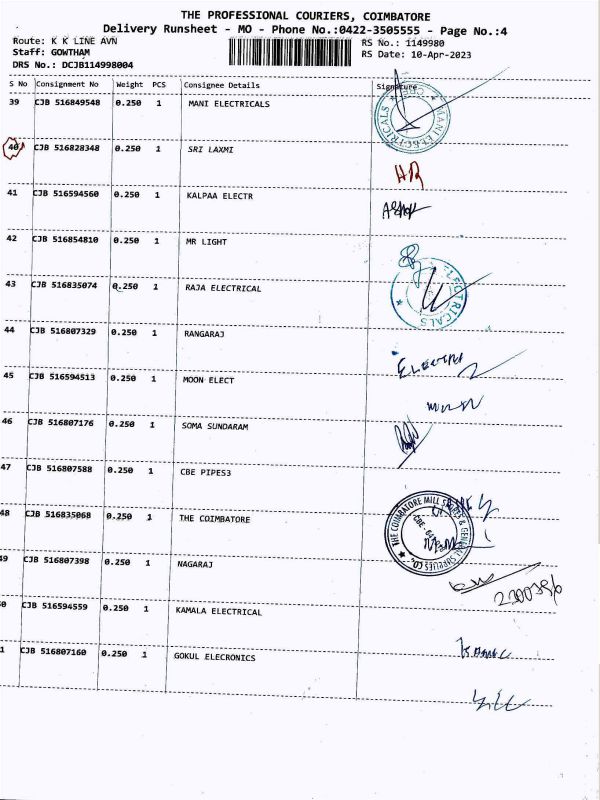 THE PROFESSIONAL COURIERS, COIMBATORE
Delivery Runsheet - MO - Phone No.:0422-3505555 - Page No.:4
Route: K K LINE AVN RS No.: 1149980
Staff: GOWTHAM RS Date: 10-Apr-2023
DRS No.: DCJB114998004
S No Consignment No Weight PCS Consignee Details Signature
39 CJB 516849548 0.250 1 MANI ELECTRICALS
MANI ELECTRICALS CBE
40 CJB 516828348 0.250 1 SRI LAXMI
HR
41 CJB 516594560 0.250 1 KALPAA ELECTR
42 CJB 516854810 0.250 1 MR LIGHT
43 CJB 516835074 0.250 1 RAJA ELECTRICAL
ELECTRICALS
44 CJB 516807329 0.250 1 RANGARAJ
45 CJB 516594513 0.250 1 MOON ELECT
46 CJB 516807176 0.250 1 SOMA SUNDARAM
47 CJB 516807588 0.250 1 CBE PIPES3
48 CJB 516835068 0.250 1 THE COIMBATORE
THE COIMBATORE MILL STORES & GENERAL SUPPLIES CO.
49 CJB 516807398 0.250 1 NAGARAJ
0 CJB 516594559 0.250 1 KAMALA ELECTRICAL
1 CJB 516807160 0.250 1 GOKUL ELECRONICS